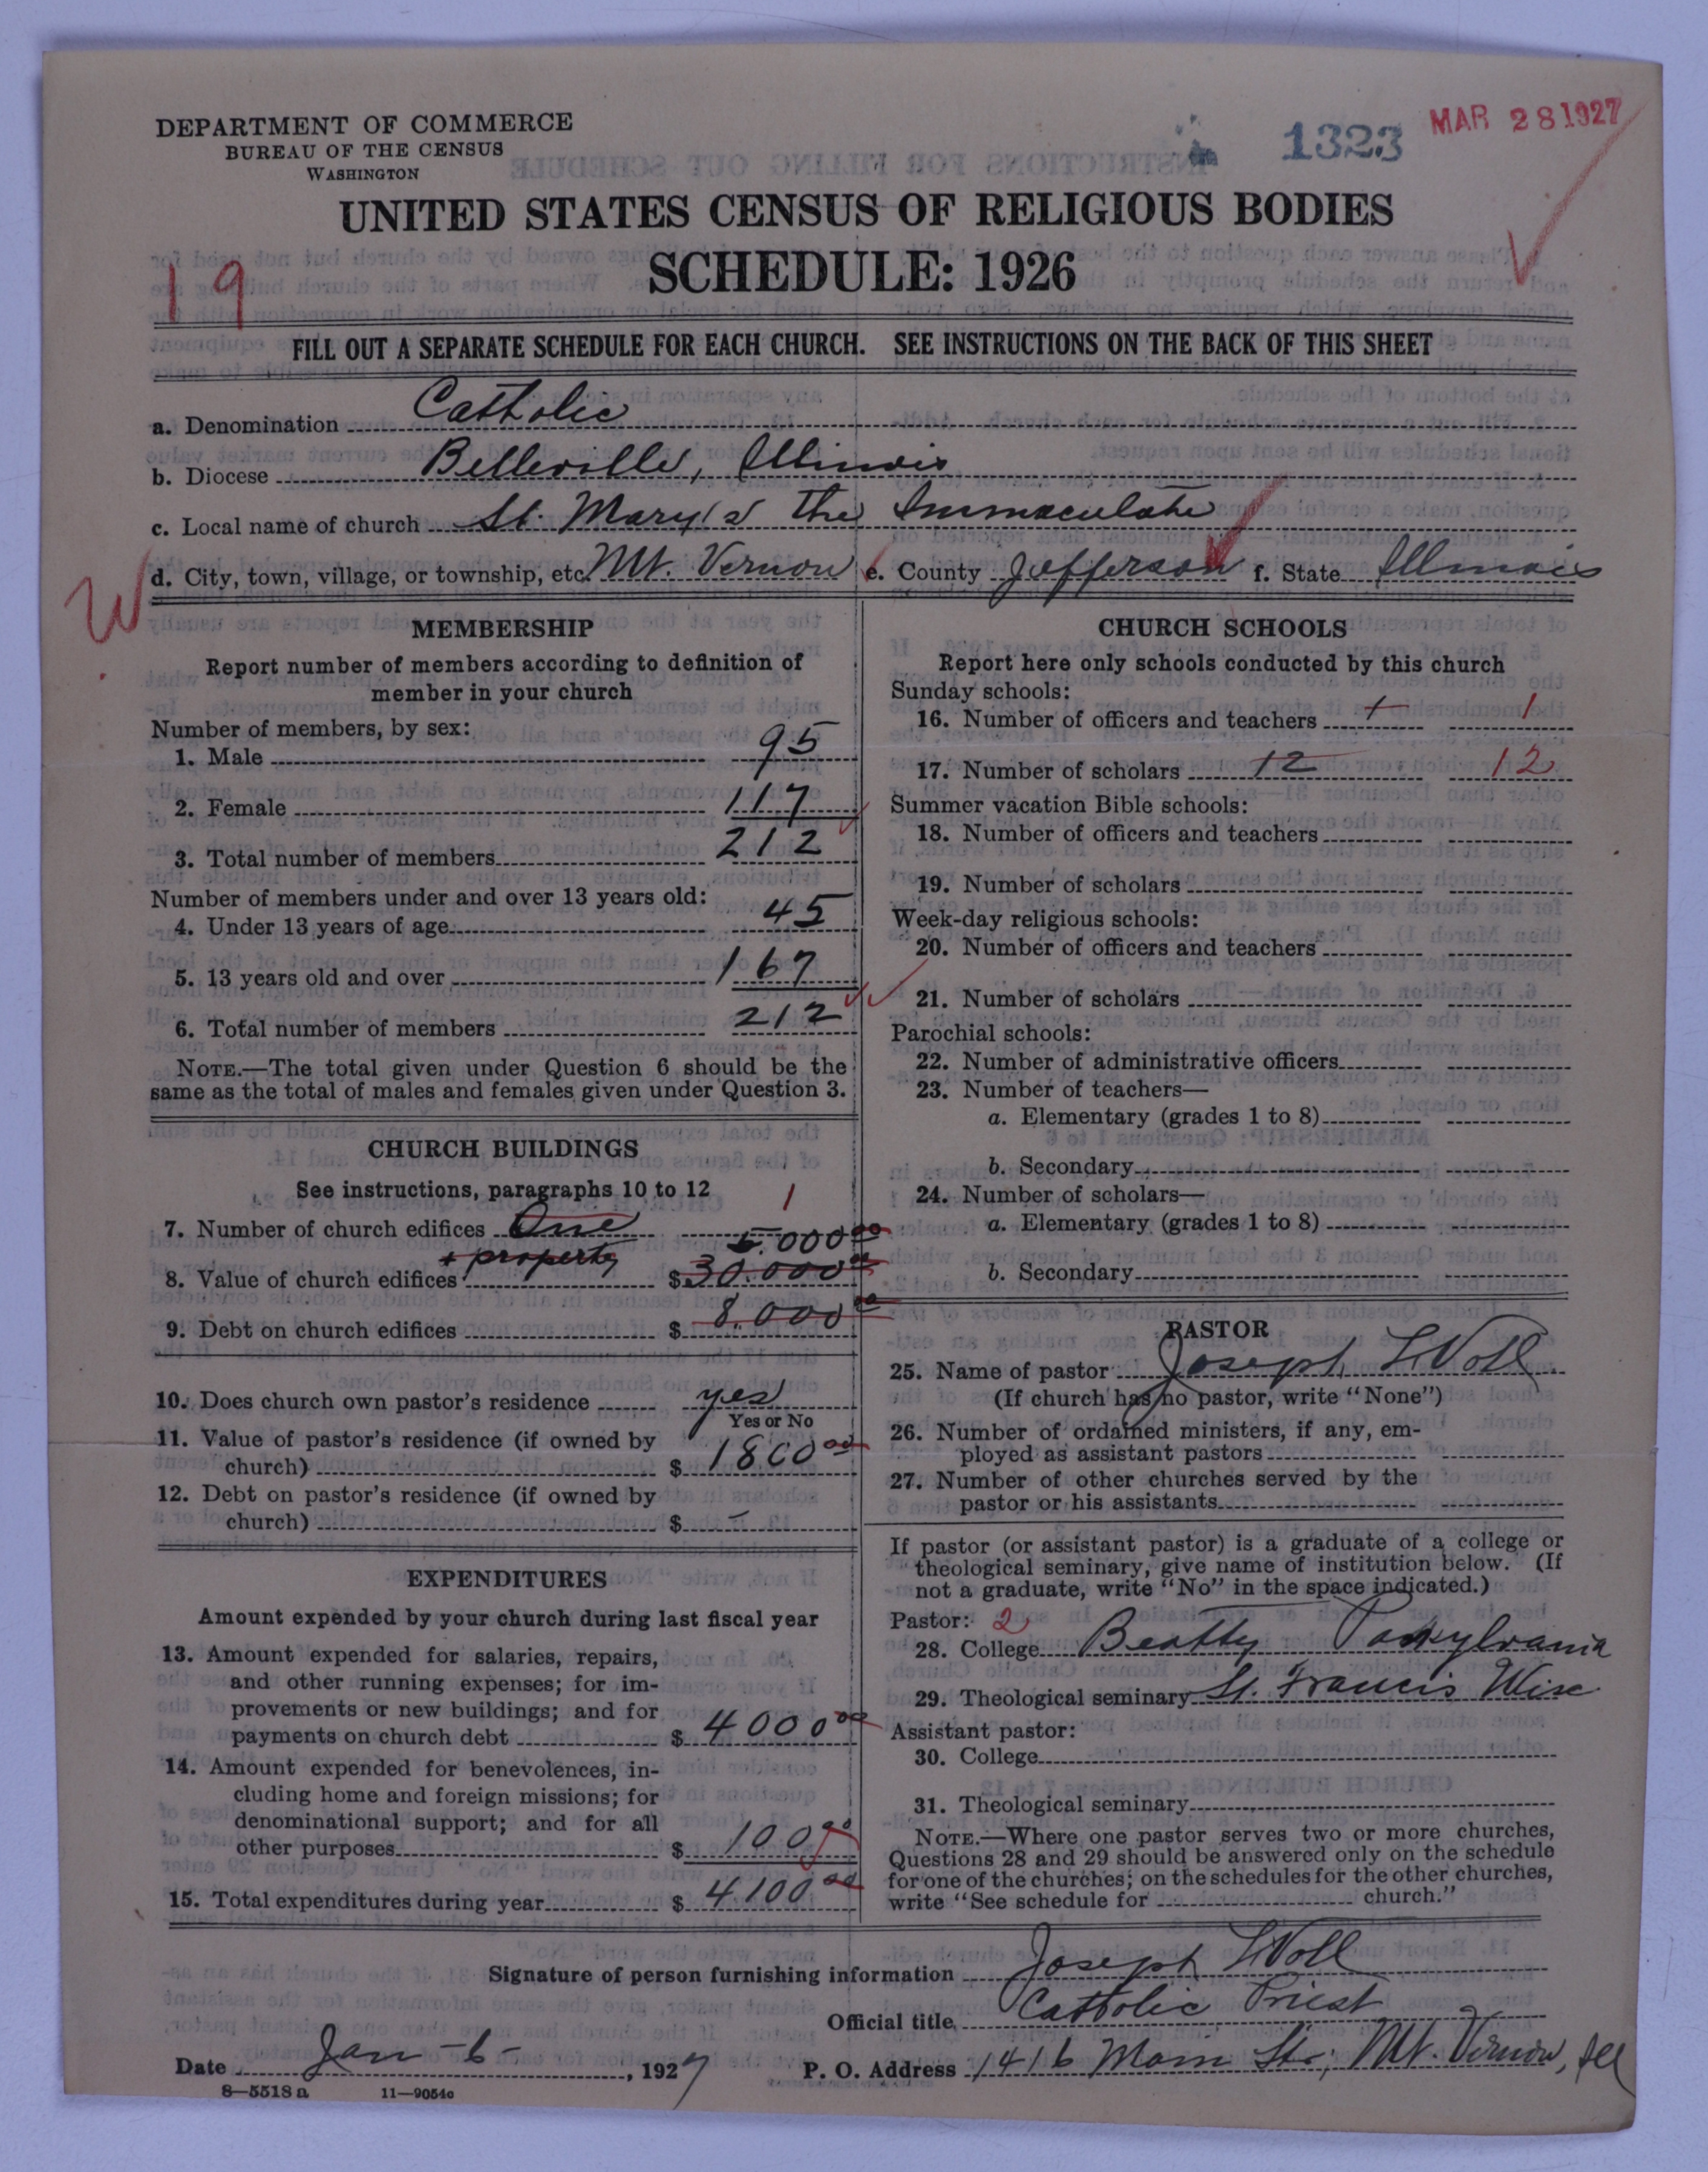 DEPARTMENT OF COMMERCE
BUREAU OF THE CENSUS
WASHINGTON
1323
MAR 28 1927
UNITED STATES CENSUS OF RELIGIOUS BODIES
SCHEDULE: 1926
19
FILL OUT A SEPARATE SCHEDULE FOR EACH CHURCH. SEE INSTRUCTIONS ON THE BACK OF THIS SHEET
a. Denomination Catholic
b. Diocese Belleville, Illinois
c. Local name of church St. Mary's The Immaculate
d. City, town, village, or township, etc. Mt. Vernon e. County Jefferson f. State Illinois
W
MEMBERSHIP
Report number of members according to definition of
member in your church
Number of members, by sex:
1. Male 95
2. Female 117
3. Total number of members 212
Number of members under and over 13 years old:
4. Under 13 years of age 45
5. 13 years old and over 167
6. Total number of members 212
NOTE.—The total given under Question 6 should be the
same as the total of males and females given under Question 3.
CHURCH BUILDINGS
See instructions, paragraphs 10 to 12
7. Number of church edifices One 1
5.000 00
+ property
8. Value of church edifices $ 30.000 00
9. Debt on church edifices $ 8.000 00
10. Does church own pastor's residence yes
Yes or No
11. Value of pastor's residence (if owned by
church) $ 1800 00
12. Debt on pastor's residence (if owned by
church) $ —
EXPENDITURES
Amount expended by your church during last fiscal year
13. Amount expended for salaries, repairs,
and other running expenses; for im-
provements or new buildings; and for
payments on church debt $ 4000 00
14. Amount expended for benevolences, in-
cluding home and foreign missions; for
denominational support; and for all
other purposes $ 100 00
15. Total expenditures during year $ 4100 00
CHURCH SCHOOLS
Report here only schools conducted by this church
Sunday schools:
16. Number of officers and teachers 1 1
17. Number of scholars 12 12
Summer vacation Bible schools:
18. Number of officers and teachers
19. Number of scholars
Week-day religious schools:
20. Number of officers and teachers
21. Number of scholars
Parochial schools:
22. Number of administrative officers
23. Number of teachers—
a. Elementary (grades 1 to 8)
b. Secondary
24. Number of scholars—
a. Elementary (grades 1 to 8)
b. Secondary
PASTOR
25. Name of pastor Joseph L Voll
(If church has no pastor, write "None")
26. Number of ordained ministers, if any, em-
ployed as assistant pastors
27. Number of other churches served by the
pastor or his assistants
If pastor (or assistant pastor) is a graduate of a college or
theological seminary, give name of institution below. (If
not a graduate, write "No" in the space indicated.)
Pastor: 2
28. College Beatty
29. Theological seminary St. Francis Wisc
Assistant pastor:
30. College
31. Theological seminary
NOTE.—Where one pastor serves two or more churches,
Questions 28 and 29 should be answered only on the schedule
for one of the churches; on the schedules for the other churches,
write "See schedule for church."
Signature of person furnishing information Joseph L Voll
Official title Catholic Priest
Date Jan - 6 - , 1927 P. O. Address 1416 Main St., Mt. Vernon, Ill
8—5518 a 11—9054c